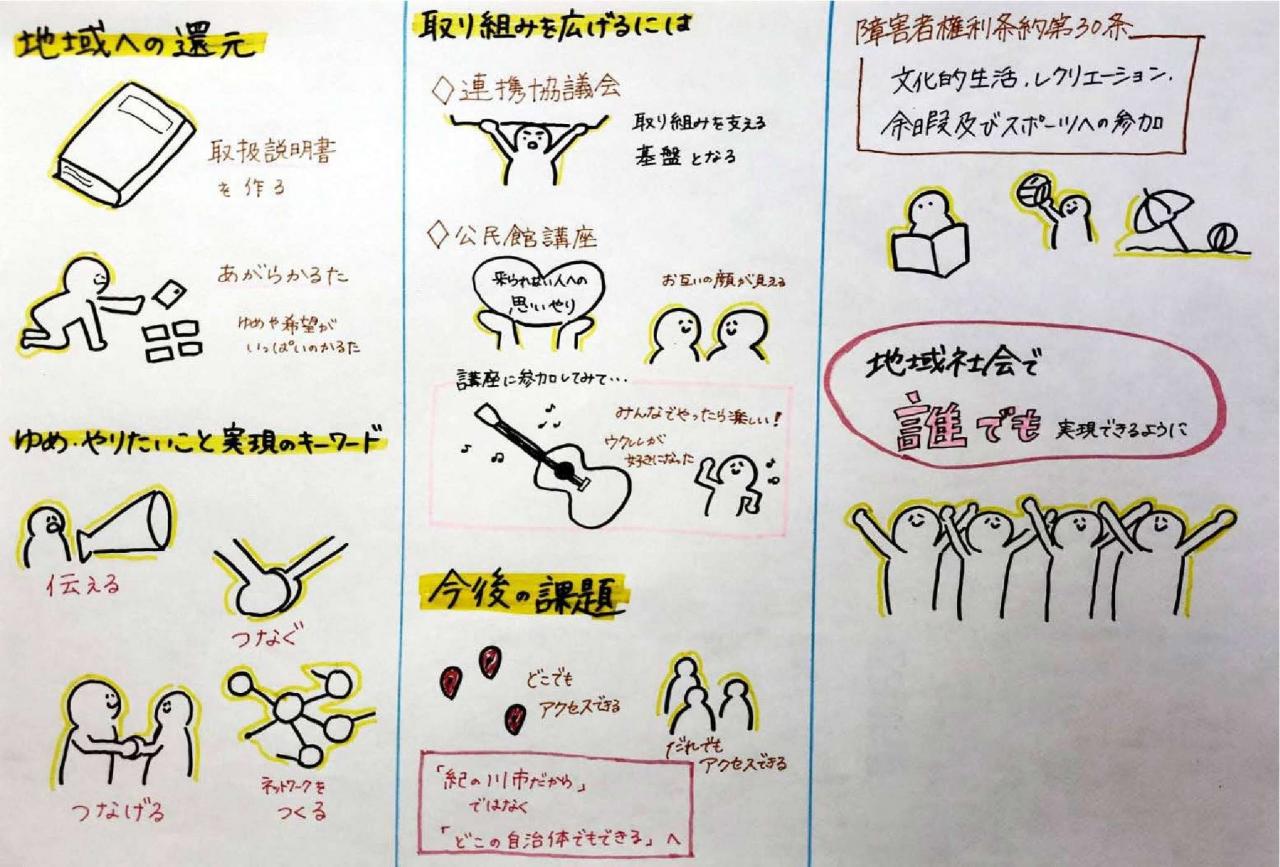 地域への還元
取扱説明書
を作る
あがらかるた
ゆめや希望が
いっぱいのかるた
ゆめ・やりたいこと実現のキーワード
伝える
つなぐ
つなげる
ネットワークを
つくる
取り組みを広げるには
◇連携協議会
取り組みを支える
基盤となる
◇公民館講座
来られない人への
思いやり
お互いの顔が見える
講座に参加してみて…
みんなでやったら楽しい！
ウクレレが
好きになった
今後の課題
どこでも
アクセスできる
だれでも
アクセスできる
「紀の川市だから」
ではなく
「どこの自治体でもできる」へ
障害者権利条約第30条
文化的生活、レクリエーション、
余暇及びスポーツへの参加
地域社会で
誰でも 実現できるように